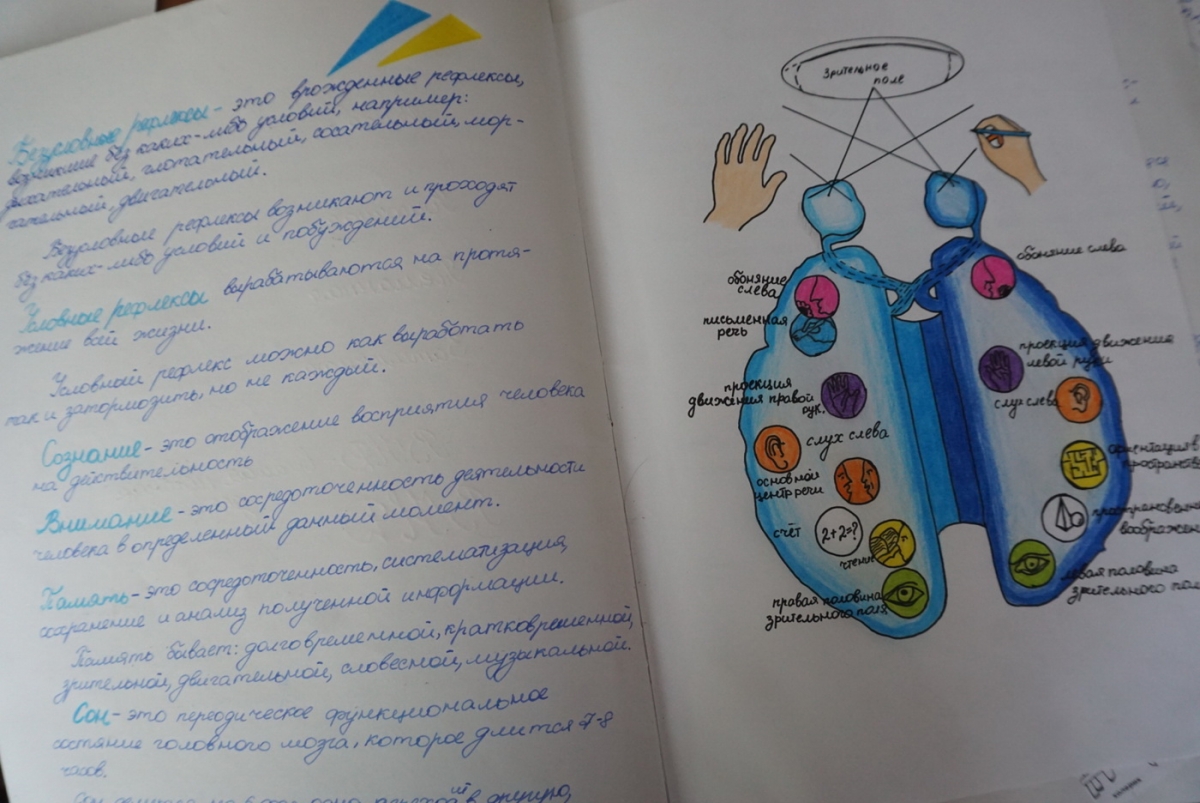 Безусловные рефлексы - это врожденные рефлексы,
возникшие без каких-либо условий, например:
дыхательный, глотательный, сосательный, мор-
гательный, двигательный.
Безусловные рефлексы возникают и проходят
без каких-либо условий и побуждений.
Условные рефлексы вырабатываются на протя-
жение всей жизни.
Условный рефлекс можно как выработать
так и затормозить, но не каждый.
Сознание - это отображение восприятия человека
на действительность
Внимание - это сосредоточенность деятельности
человека в определенный данный момент.
Память - это сосредоточенность, систематизация,
сохранение и анализ полученной информации.
Память бывает: долговременной, кратковременной,
зрительной, двигательной, словесной, музыкальной.
Сон - это переодическое функциональное
состяние головного мозга, которое длится 7-8
часов.
Зрительное
поле
обоняние
слева
письменная
речь
проекция
движения правой
рук.
слух слева
основной
центр речи
счёт
2+2=?
чтение
правая половина
зрительного поля
обоняние слева
проекция движения
левой руки
слух слева
ориентация в
пространств
воображен
левая половина
зрительного пол